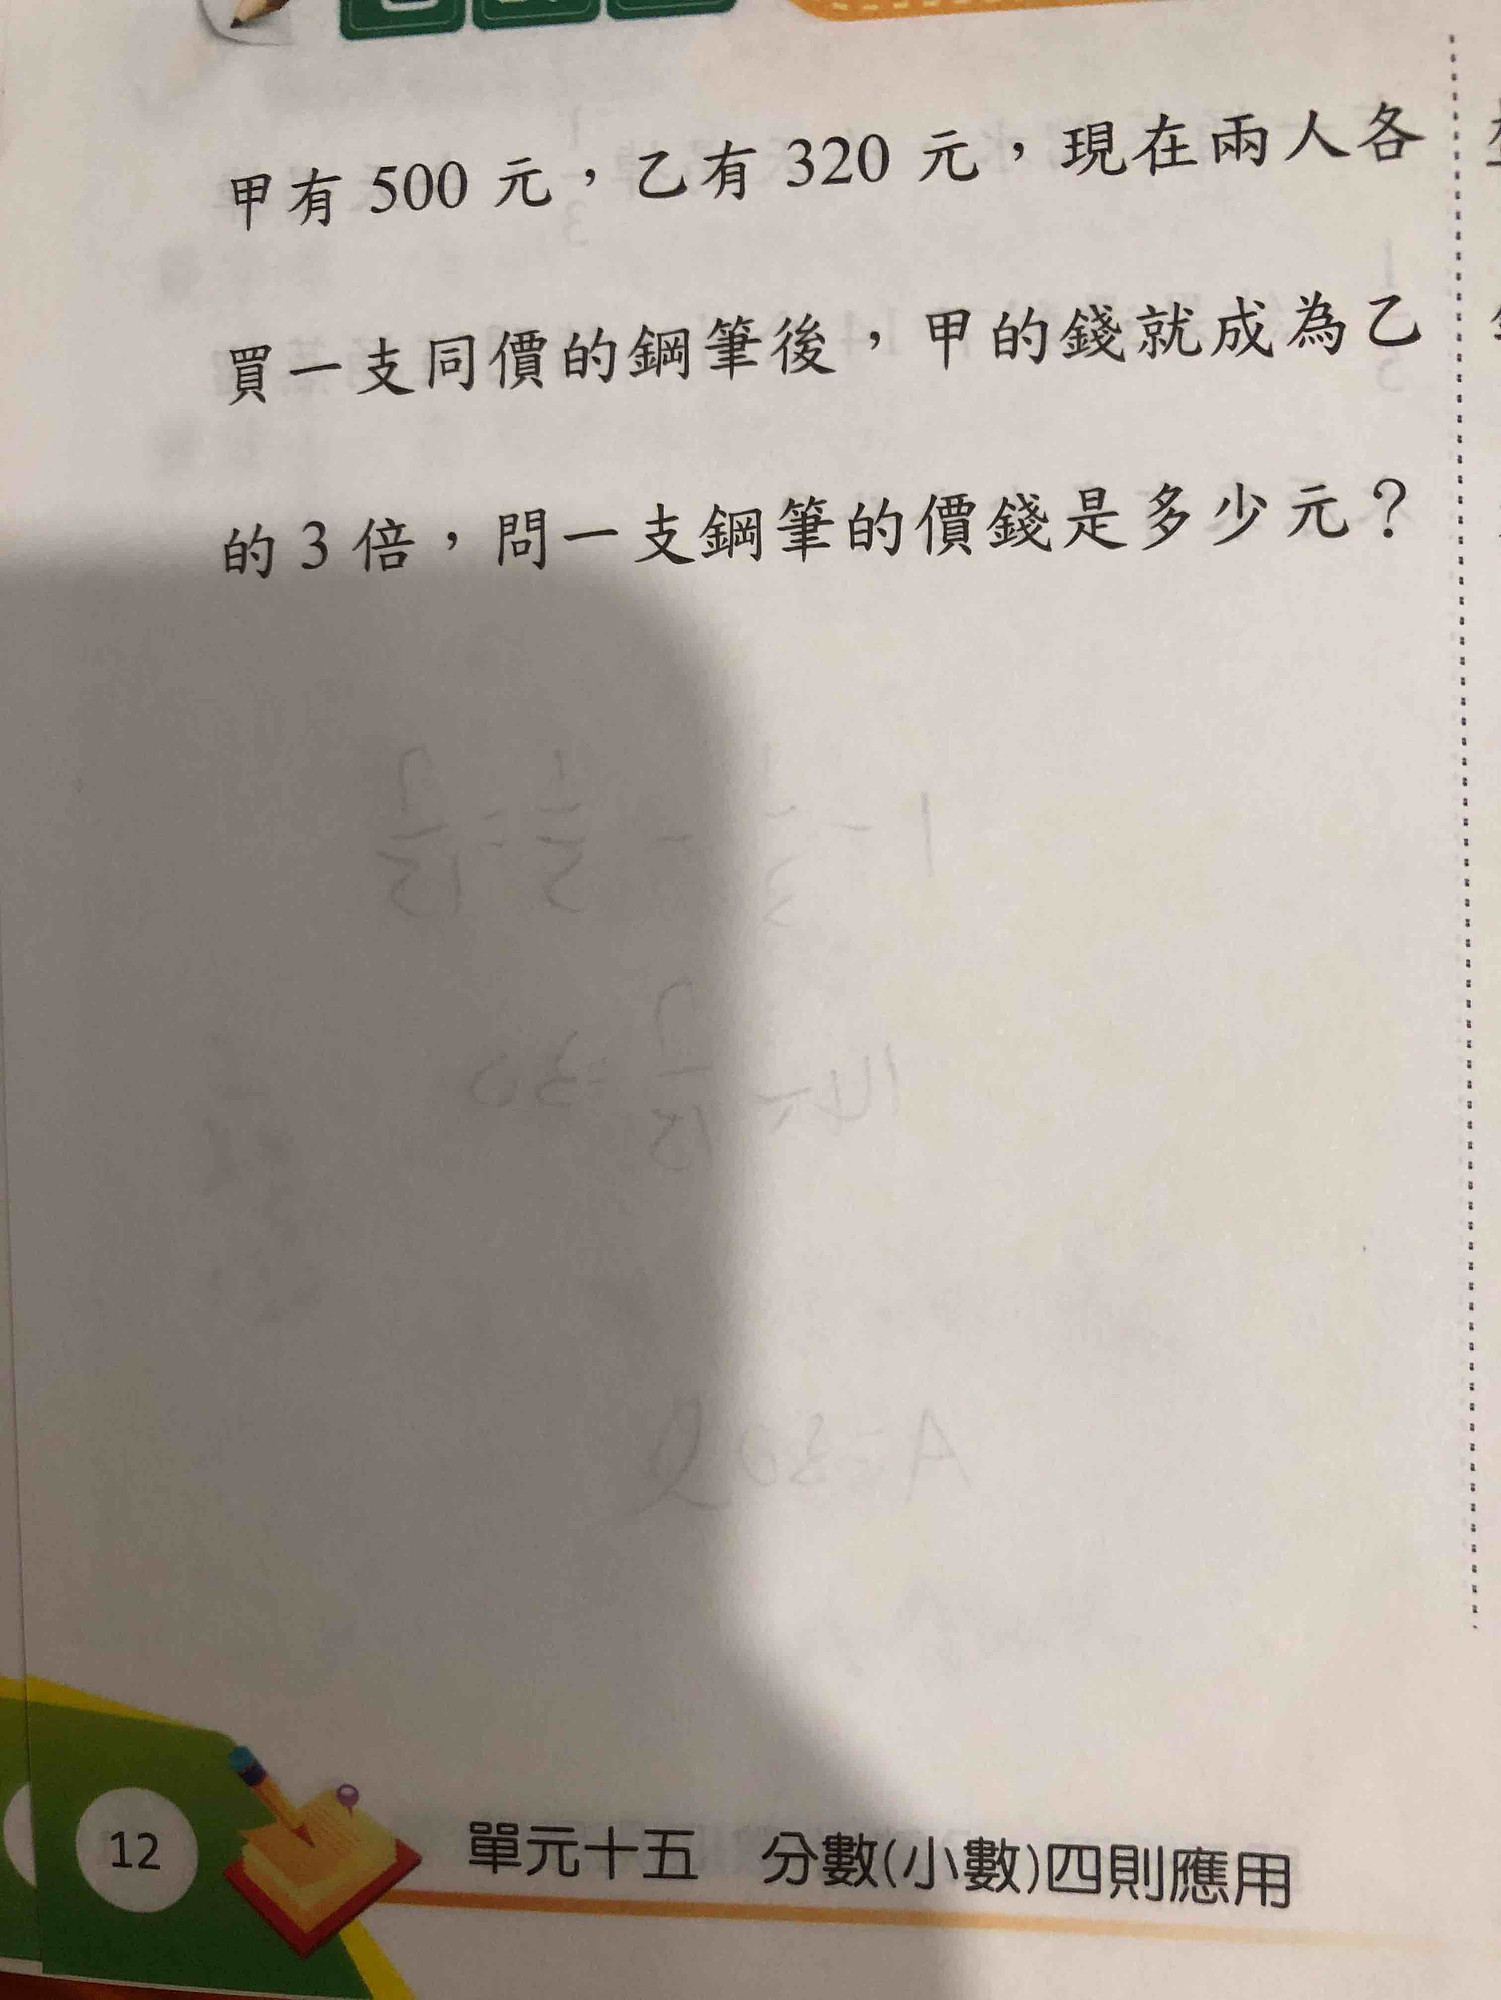 甲有 500 元，乙有 320 元，現在兩人各
買一支同價的鋼筆後，甲的錢就成為乙
的 3 倍，問一支鋼筆的價錢是多少元？
12
單元十五 分數(小數)四則應用